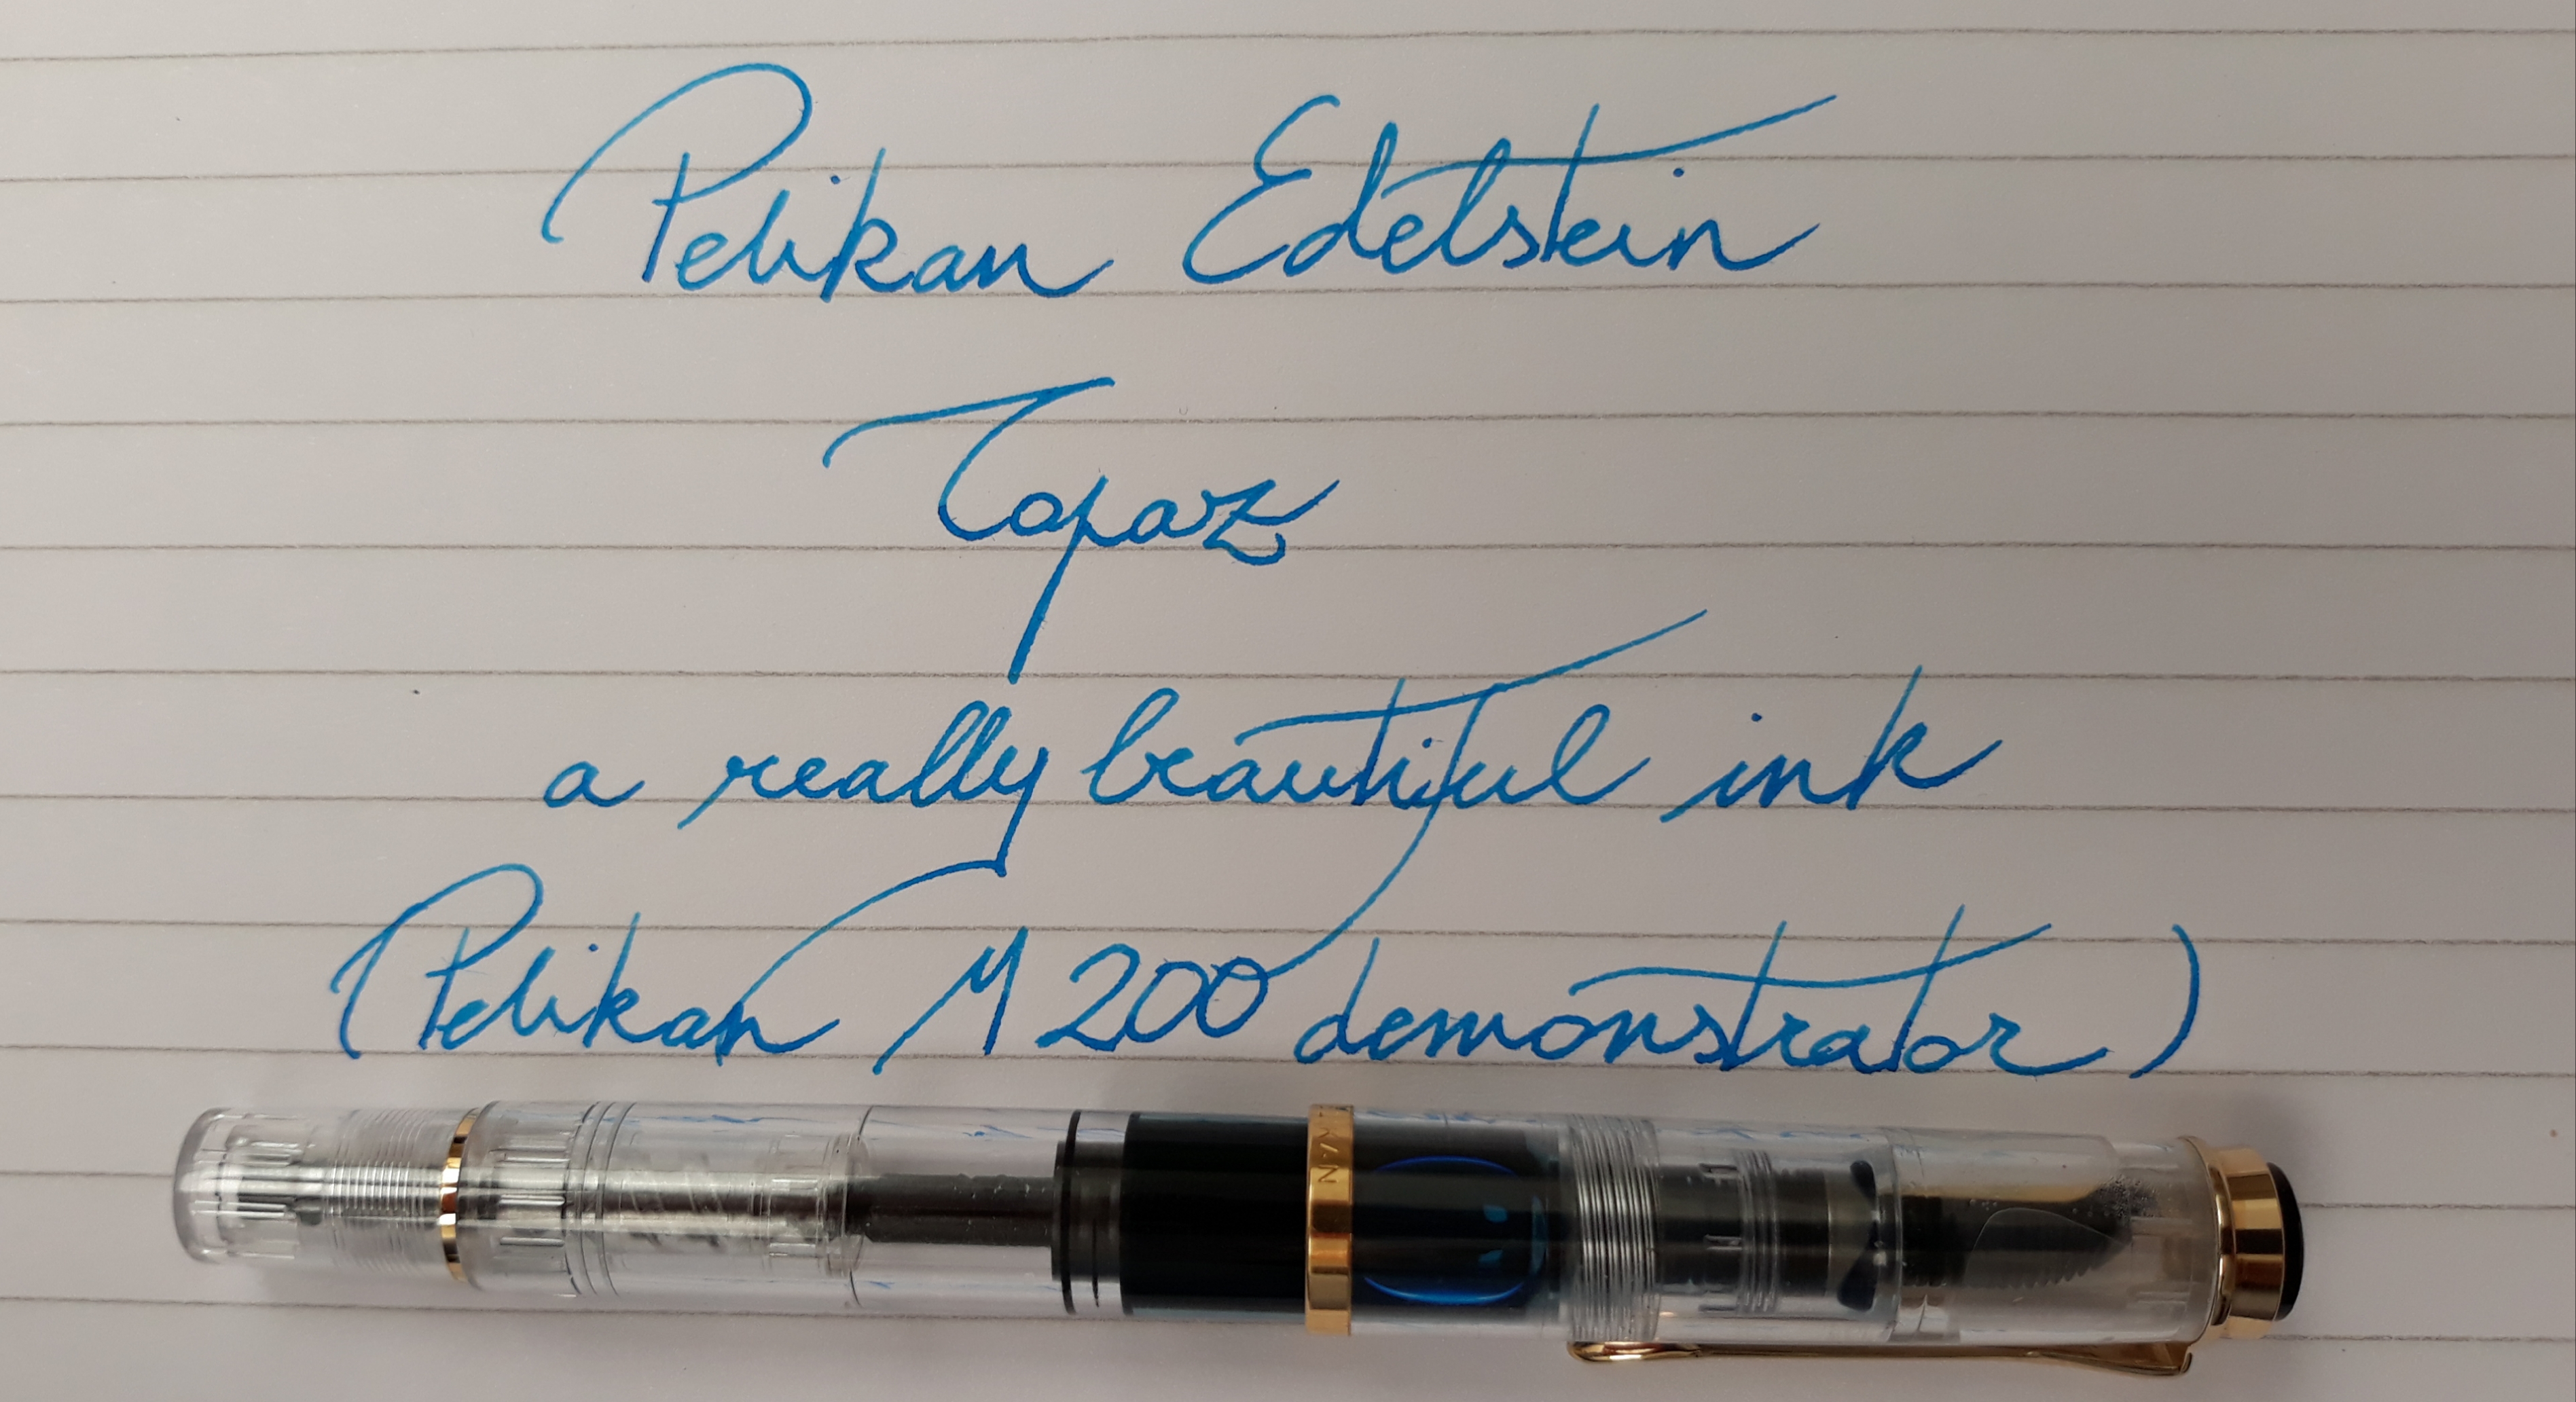 Pelikan Edelstein
Topaz
a really beautiful ink
(Pelikan M200 demonstrator)